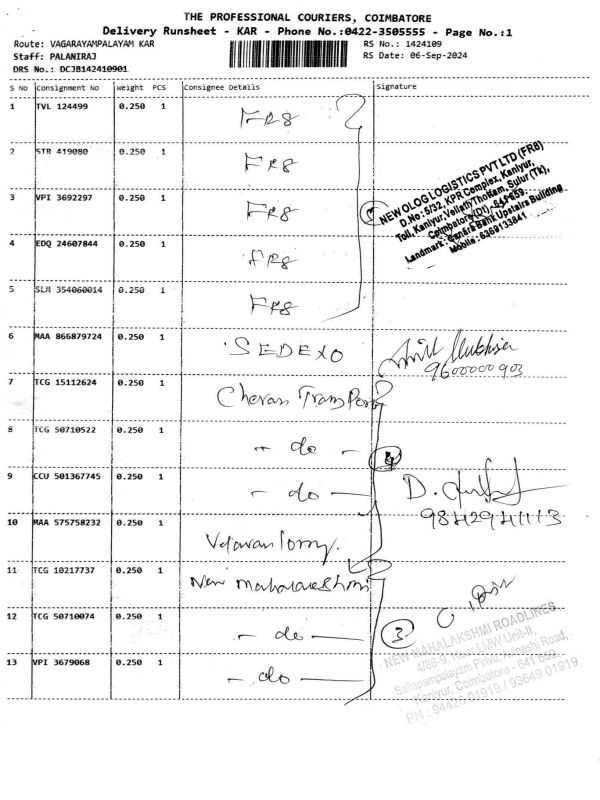 THE PROFESSIONAL COURIERS, COIMBATORE
Delivery Runsheet - KAR - Phone No.:0422-3505555 - Page No.:1
Route: VAGARAYAMPALAYAM KAR RS No.: 1424109
Staff: PALANIRAJ RS Date: 06-Sep-2024
DRS No.: DCJB142410901
S No Consignment No Weight PCS Consignee Details Signature
1 TVL 124499 0.250 1 FR8
2 STR 419080 0.250 1 FR8
3 VPI 3692297 0.250 1 FR8
4 EDQ 24607844 0.250 1 FR8
5 SLM 354060014 0.250 1 FR8
5
NEW OLOG LOGISTICS PVT LTD (FR8)
D.No: 5/32, KPR Complex, Kaniyur,
Toll, Kaniyur, Thottam, Sulur (Tk),
Coimbatore (Dt), 641 659.
Landmark: Canara Bank Upstairs Building
Mobile: 6369133841
6 MAA 866879724 0.250 1 SEDEXO
9600000903
7 TCG 15112624 0.250 1 Cheran Transport
8 TCG 50710522 0.250 1 - do -
4
9 CCU 501367745 0.250 1 - do -
D.
9842941113
10 MAA 575758232 0.250 1 lorry.
11 TCG 10217737 0.250 1 New mahalakshmi
12 TCG 50710074 0.250 1 - do -
3
13 VPI 3679068 0.250 1 - do -
NEW MAHALAKSHMI ROADLINES
4/86-9, Near LMW Unit-II,
Pirivu, Avinashi Road,
Kaniyur, Coimbatore - 641 659.
PH : 94426 01919 / 93649 01919